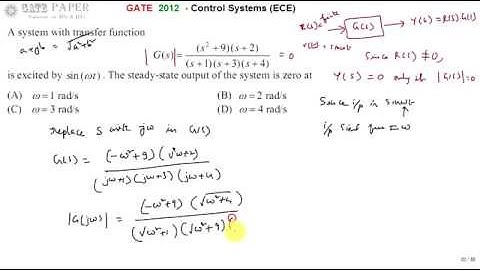 GATE PAPER
GATE 2012 - Control Systems (ECE)
A system with transfer function
a+jb = √a²+b²
|G(s)| = (s²+9)(s+2) / (s+1)(s+3)(s+4) = 0
is excited by sin(ωt). The steady-state output of the system is zero at
(A) ω = 1 rad/s (B) ω = 2 rad/s
(C) ω = 3 rad/s (D) ω = 4 rad/s
G(s)
Y(s) = R(s).G(s)
Since R(s) ≠ 0,
Y(s) = 0 only if |G(s)|=0
Since i/p is sinωt
i/p
= ω
replace s with jω in G(s)
G(s) = (-ω²+9)(jω+2) / (jω+1)(jω+3)(jω+4)
|G(jω)| = (-ω²+9)(√ω²+4) / (√ω²+1)(√ω²+9)(